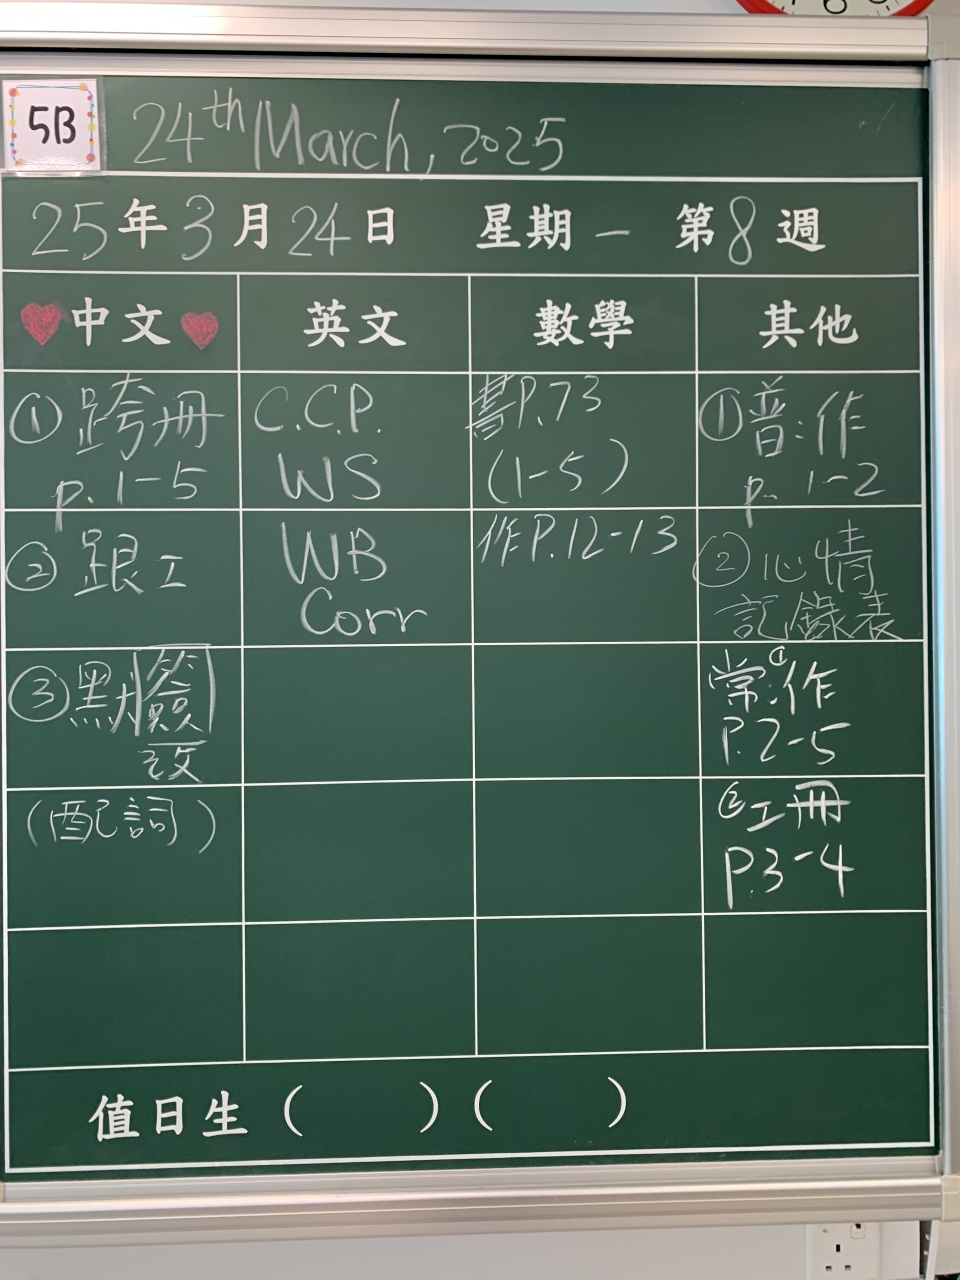 5B
24th March, 2025
25年3月24日 星期一 第8週
中文 英文 數學 其他
①跨冊
p. 1-5
C.C.P.
WS
書P.73
(1-5)
①普:作
p. 1-2
②跟工
WB
Corr
作P.12-13
②心情
記錄表
③默簽
改
常:①作
P.2-5
(配詞)
②工冊
P.3-4
值日生 ( ) ( )